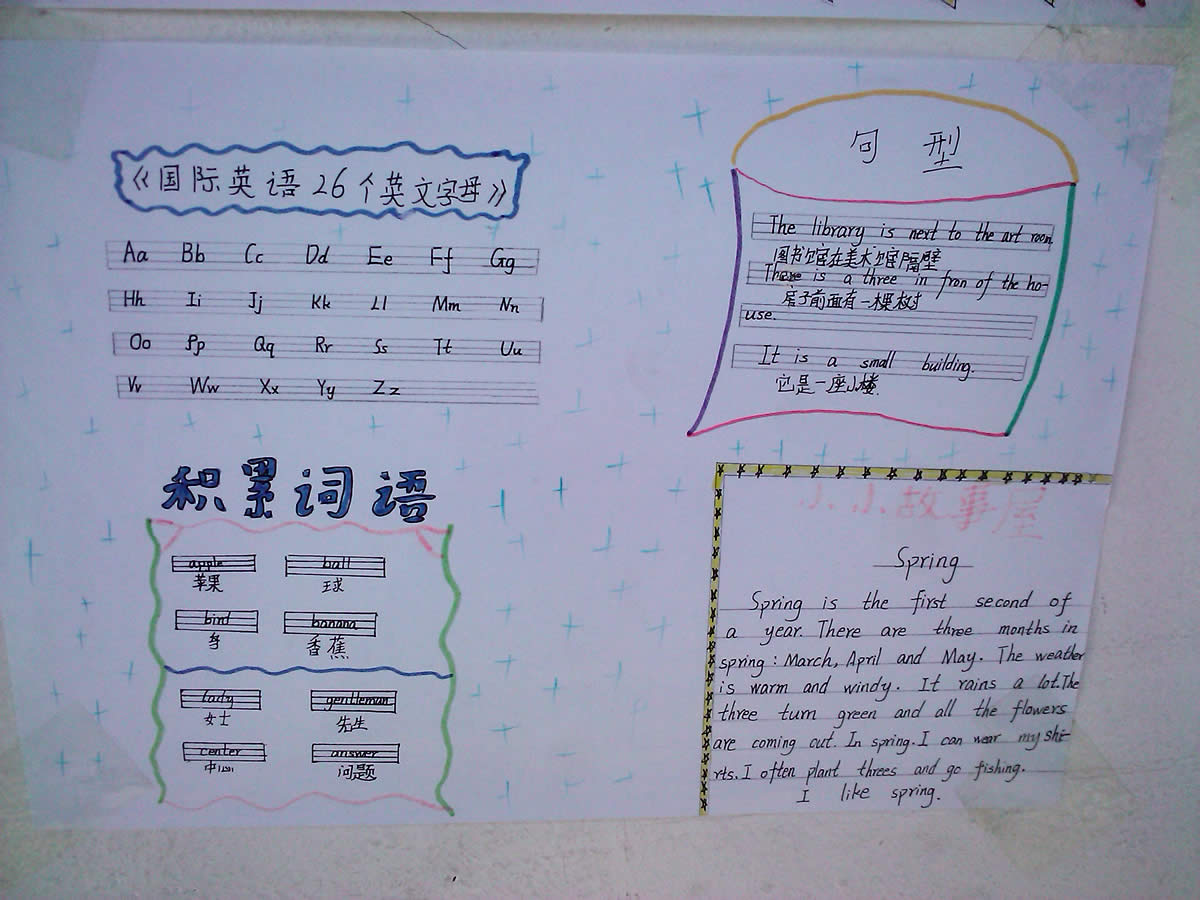 《国际英语26个英文字母》
Aa Bb Cc Dd Ee Ff Gg
Hh Ii Jj Kk Ll Mm Nn
Oo Pp Qq Rr Ss Tt Uu
Vv Ww Xx Yy Zz
句型
The library is next to the art room
图书馆在美术馆隔壁
There is a three in fron of the ho-
房子前面有一棵树
use.
It is a small building.
它是一座小楼.
积累词语
apple ball
苹果 球
bird banana
鸟 香蕉
lady gentleman
女士 先生
center answer
中心 问题
小小故事屋
Spring
Spring is the first second of
a year. There are three months in
spring: March, April and May. The weather
is warm and windy. It rains a lot. The
three turn green and all the flowers
are coming out. In spring. I can wear my shi-
rts. I often plant threes and go fishing.
I like spring.